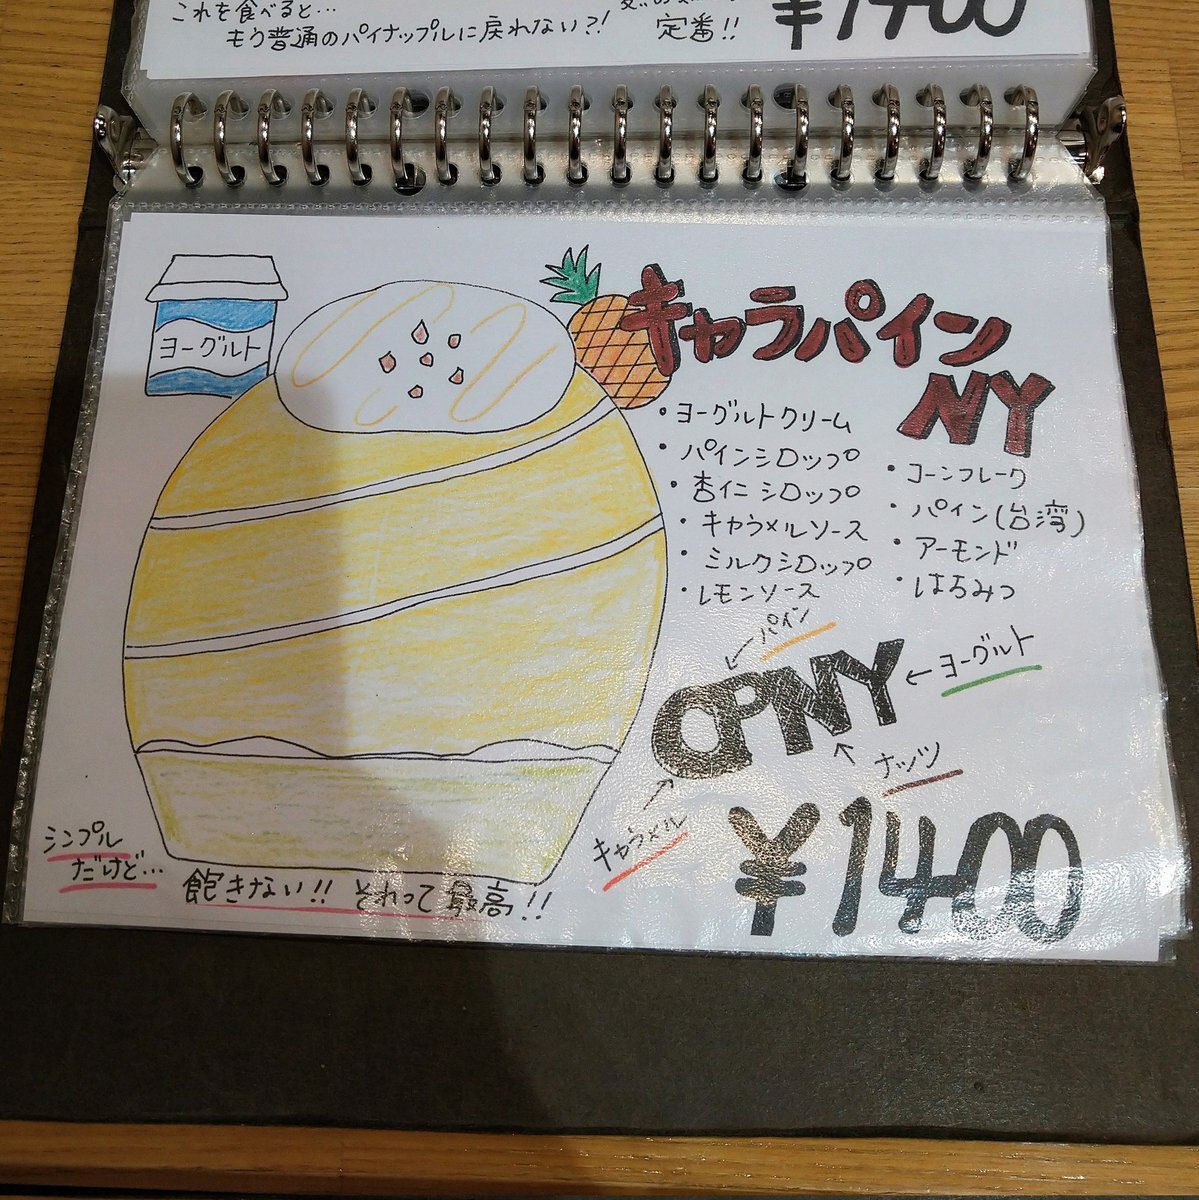 これを食べると…
もう普通のパイナップルに戻れない?!
定番!!
¥1400
ヨーグルト
キャラパイン
NY
・ヨーグルトクリーム
・パインシロップ
・杏仁シロップ
・キャラメルソース
・ミルクシロップ
・レモンソース
・コーンフレーク
・パイン(台湾)
・アーモンド
・はちみつ
パイン
CPNY
ヨーグルト
ナッツ
キャラメル
¥1400
シンプル
だけど…
飽きない!! それって最高!!